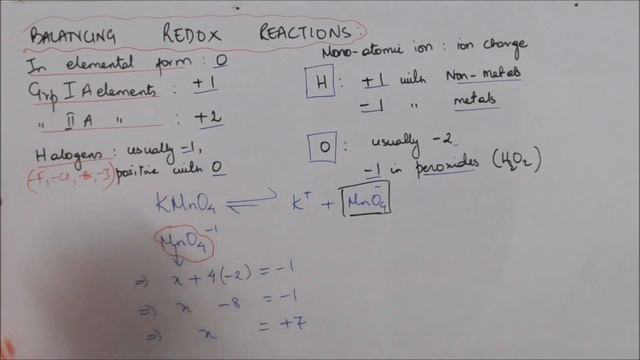 BALANCING REDOX REACTIONS:
In elemental form : 0
Grp I A elements : +1
" II A " : +2
Halogens : usually -1,
(-F, -Cl, -Br, -I) positive with O
Mono-atomic ion : ion charge
H : +1 with Non-metals
-1 " metals
O : usually -2
-1 in peroxides (H₂O₂)
KMnO₄ ⇌ K⁺ + MnO₄⁻
MnO₄⁻¹
⇒ x + 4(-2) = -1
⇒ x -8 = -1
⇒ x = +7